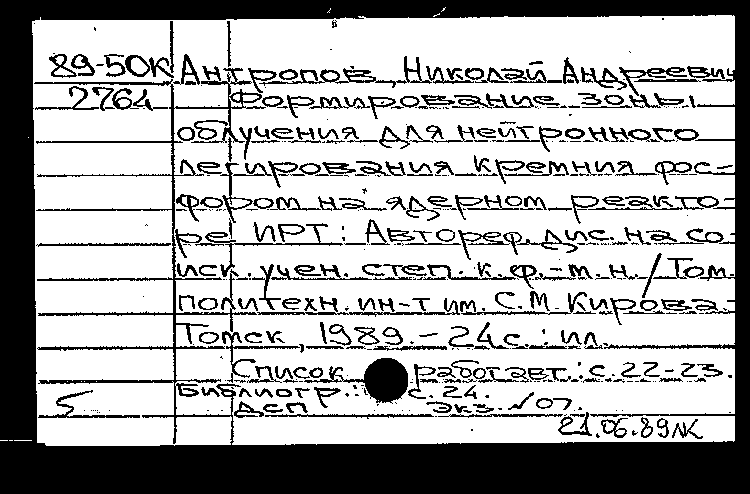 89-50К Антропов, Николай Андреевич
2764 Формирование зоны
облучения для нейтронного
легирования кремния фос-
фором на ядерном реакто-
ре ИРТ : Автореф. дис. на со-
иск. учен. степ. к. ф.-м. н. / Том.
политехн. ин-т им. С.М. Кирова.-
Томск, 1989.- 24 с. : ил.
Список работ авт.: с. 22-23.
Библиогр.: с. 24.
5 ДСП Экз. №07.
21.06.89 ЛК